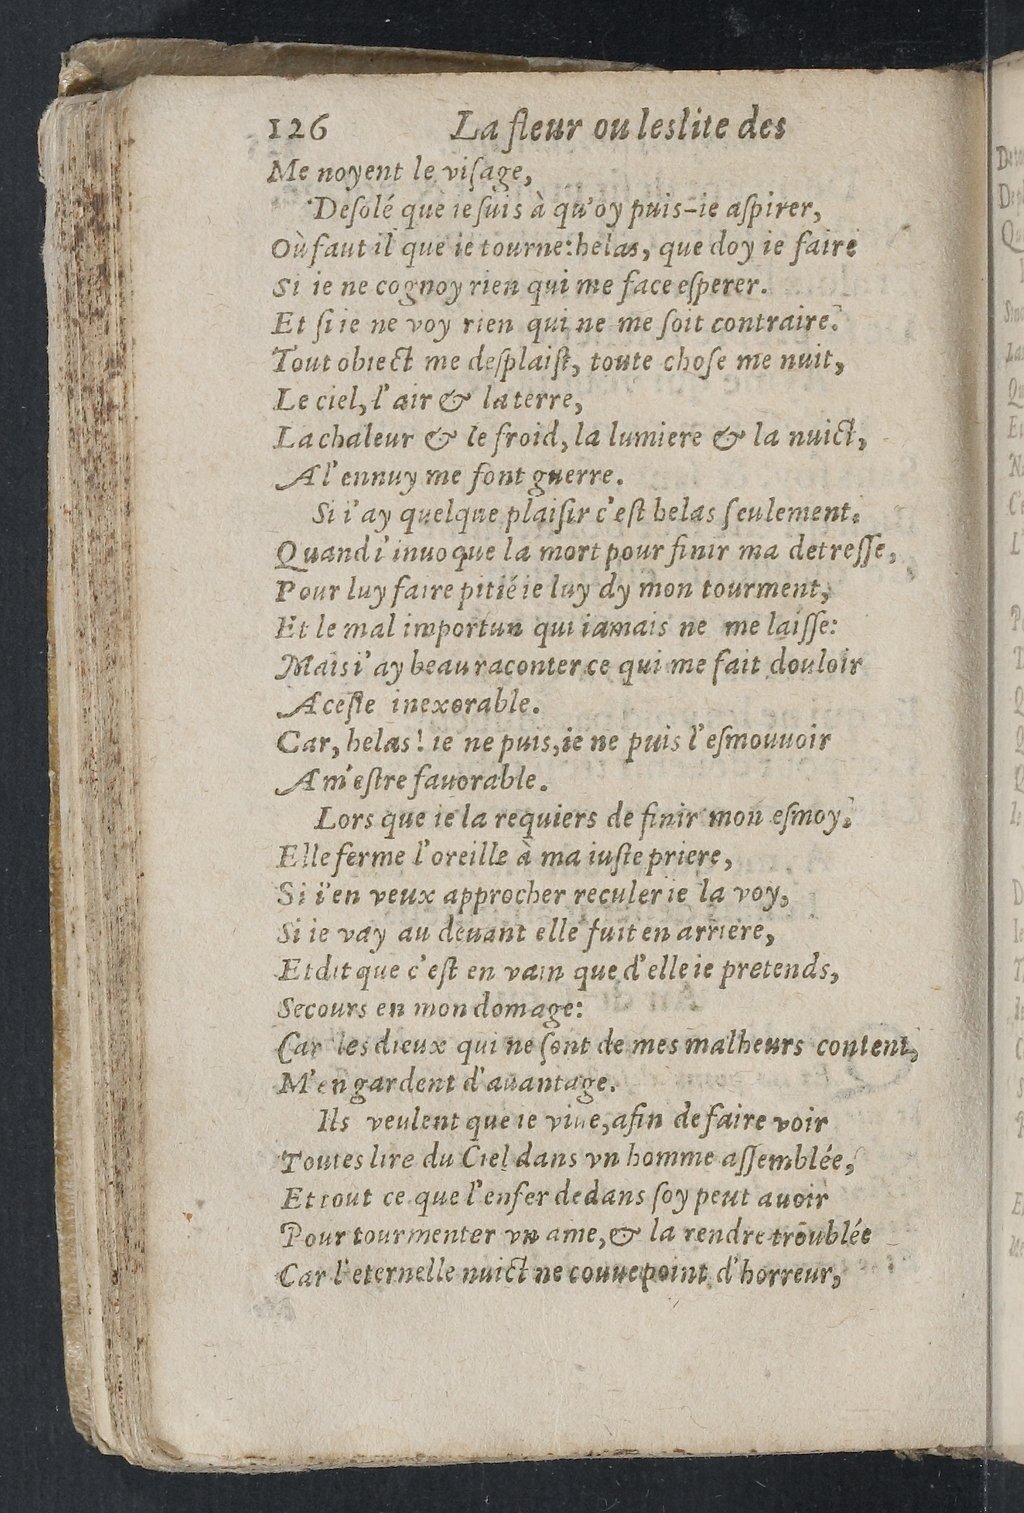 126 La fleur ou leslite des
Me noyent le viſage,
Deſolé que ie ſuis à qu'oy puis-ie aſpirer,
Où faut il que ie tourne: helas, que doy ie faire
Si ie ne cognoy rien qui me face eſperer.
Et ſi ie ne voy rien qui ne me ſoit contraire.
Tout obiect me deſplaiſt, toute choſe me nuit,
Le ciel, l'air & la terre,
La chaleur & le froid, la lumiere & la nuict,
A l'ennuy me font guerre.
Si i'ay quelque plaiſir c'eſt helas ſeulement.
Quand i'inuoque la mort pour finir ma detreſſe,
Pour luy faire pitié ie luy dy mon tourment,
Et le mal importun qui iamais ne me laiſſe:
Mais i'ay beau raconter ce qui me fait douloir
A ceſte inexorable.
Car, helas! ie ne puis, ie ne puis l'eſmouuoir
A m'eſtre fauorable.
Lors que ie la requiers de finir mon eſmoy.
Elle ferme l'oreille à ma iuſte priere,
Si i'en veux approcher reculer ie la voy,
Si ie vay au deuant elle fuit en arriere,
Et dit que c'eſt en vain que d'elle ie pretends,
Secours en mon domage:
Car les dieux qui ne ſont de mes malheurs content,
M'en gardent d'auantage.
Ils veulent que ie viue, afin de faire voir
Toutes lire du Ciel dans vn homme aſſemblée,
Et tout ce que l'enfer dedans ſoy peut auoir
Pour tourmenter vn ame, & la rendre troublée
Car l'eternelle nuict ne couue point d'horreur,